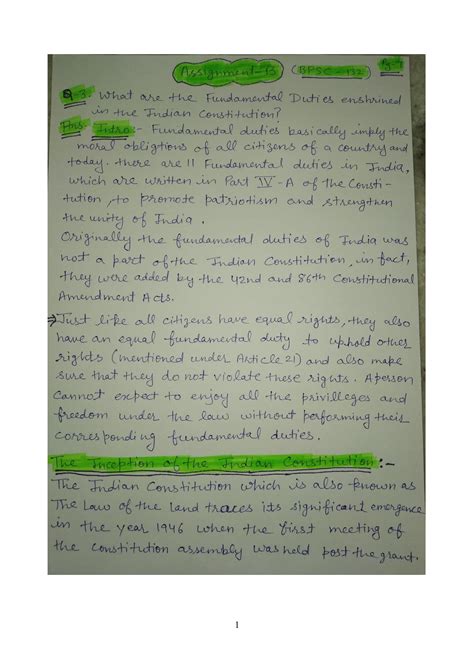 Assignment-13 (BPSC-132)
Q-3. What are the Fundamental Duties enshrined
in the Indian Constitution?
Ans. Intro:- Fundamental duties basically imply the
moral obligtions of all citizens of a country and
today. there are 11 Fundamental duties in India,
which are written in Part IV-A of the Consti-
tution, to promote patriotism and strengthen
the unity of India.
Originally the fundamental duties of India was
not a part of the Indian Constitution, in fact,
they were added by the 42nd and 86th Constitutional
Amendment Acts.
⇒Just like all citizens have equal rights, they also
have an equal fundamental duty to uphold other
rights (mentioned under Article 21) and also make
sure that they do not violate these rights. A person
cannot expect to enjoy all the privilleges and
freedom under the law without performing their
corresponding fundamental duties.
The Inception of the Indian Constitution:-
The Indian Constitution which is also known as
The Law of the land traces its significant emergence
in the year 1946 when the first meeting of
the constitution assembly was held post the grant.
1